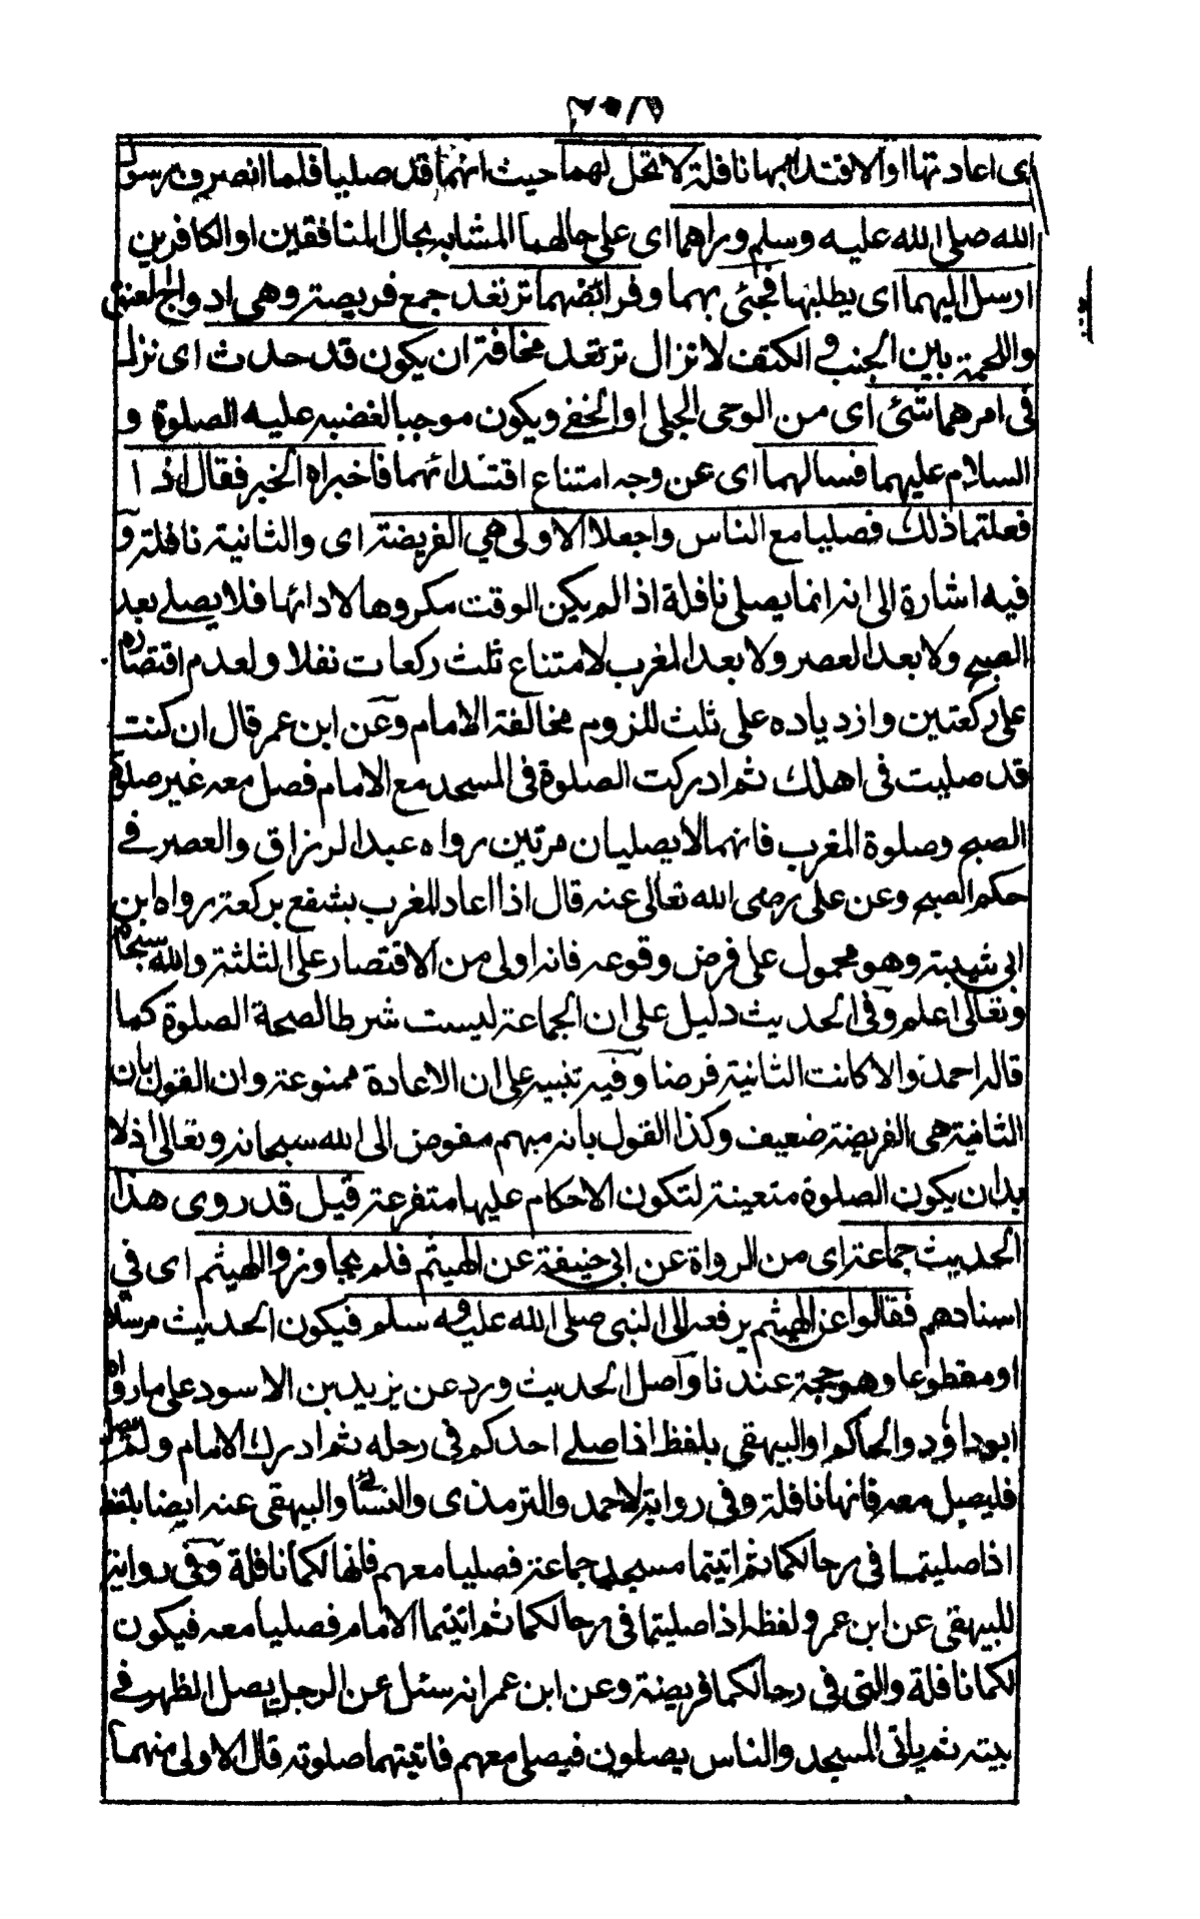 اى اعادتها او الاقتداء بها نافلة لا تحل لهما حيث انهما قد صليا فلما انصرف رسول
الله صلى الله عليه وسلم وراهما اى على حالهما المشابه بحال المنافقين او الكافرين
ارسل اليهما اى يطلبها فجئى بهما وفرائضهما ترتعد جمع فريصة وهى اوداج العنق
واللحمة بين الجنب والكتف لا تزال ترتعد مخافة ان يكون قد حدث اى نزل
فى امرهما شئى اى من الوحى الجلى او الخفے ويكون موجبا لغضبه عليه الصلوة و
السلام عليهما فسالهما اى عن وجه امتناع اقتدائهما فاخبراه الخبر فقال اذا
فعلتما ذلك فصليا مع الناس واجعلا الاولى هى الفريضة اى والثانية نافلة و
فيه اشارة الى انه انما يصلى نافلة اذا لم يكن الوقت مكروها لادائها فلا يصلے بعد
الصبح ولا بعد العصر ولا بعد المغرب لامتناع ثلث ركعات نفلا ولعدم اقتصاره
على ركعتين وازدياده على ثلث للزوم مخالفة الامام وعن ابن عمر قال ان كنت
قد صليت فى اهلك ثم ادركت الصلوة فى المسجد مع الامام فصل معه غير صلوة
الصبح وصلوة المغرب فانهما لا يصليان مرتين رواه عبد الرزاق والعصر فے
حكم الصبح وعن على رضى الله تعالى عنه قال اذا اعاد المغرب يشفع بركعة رواه ابن
ابى شيبة وهو محمول على فرض وقوعه فانه اولى من الاقتصار على الثلثة والله سبحانه
وتعالى اعلم وفى الحديث دليل على ان الجماعة ليست شرطا لصحة الصلوة كما
قاله احمد والا كانت الثانية فرضا وفيه تنبيه على ان الاعادة ممنوعة وان القول بان
الثانية هى الفريضة ضعيف وكذا القول بانه مبهم مفوض الى الله سبحانه وتعالى اذ لا
بد ان يكون الصلوة متعينة لتكون الاحكام عليها متفرعة قيل قد روى هذا
الحديث جماعة اى من الرواة عن ابى حنيفة عن الهيثم فلم يجاوزوا الهيثم اى فى
اسنادهم فقالوا عن الهيثم يرفعه الى النبى صلى الله عليه وسلم فيكون الحديث مرسلا
او مقطوعا وهو حجة عندنا واصل الحديث ورد عن يزيد بن الاسود على ما رواه
ابوداؤد والحاكم والبيهقى بلفظ اذا صلے احدكم فى رحله ثم ادرك الامام ولم يصل
فليصل معه فانها نافلة وفى رواية لاحمد والترمذى والنسائے والبيهقى عنه ايضا بلفظ
اذا صليتما فى رحالكما ثم اتيتما مسجد جماعة فصليا معهم فانها لكما نافلة وفى رواية
للبيهقى عن ابن عمر ولفظه اذا صليتما فى رحالكما ثم اتيتما الامام فصليا معه فيكون
لكما نافلة والتى فى رحالكما فريضة وعن ابن عمر انه سئل عن الرجل يصل الظهر فے
بيته ثم ياتى المسجد والناس يصلون فيصلى معهم فايتهما صلوته قال الاولى منهما